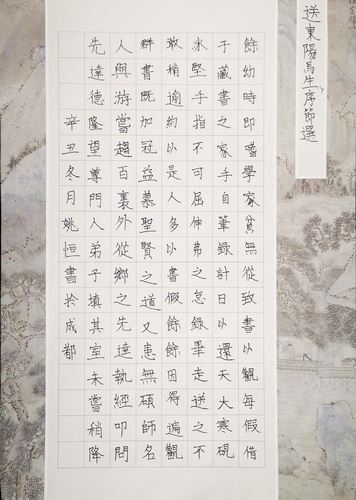 送東陽馬生序節選
餘幼時即嗜學家貧無從致書以觀每假借
于藏書之家手自筆錄計日以還天大寒硯
氷堅手指不可屈伸弗之怠錄畢走送之不
敢稍逾約以是人多以書假餘餘因得遍觀
群書既加冠益慕聖賢之道又患無碩師名
人與游嘗趨百裏外從鄉之先達執經叩問
先達德隆望尊門人弟子填其室未嘗稍降
辛丑冬月姚恒書於成都